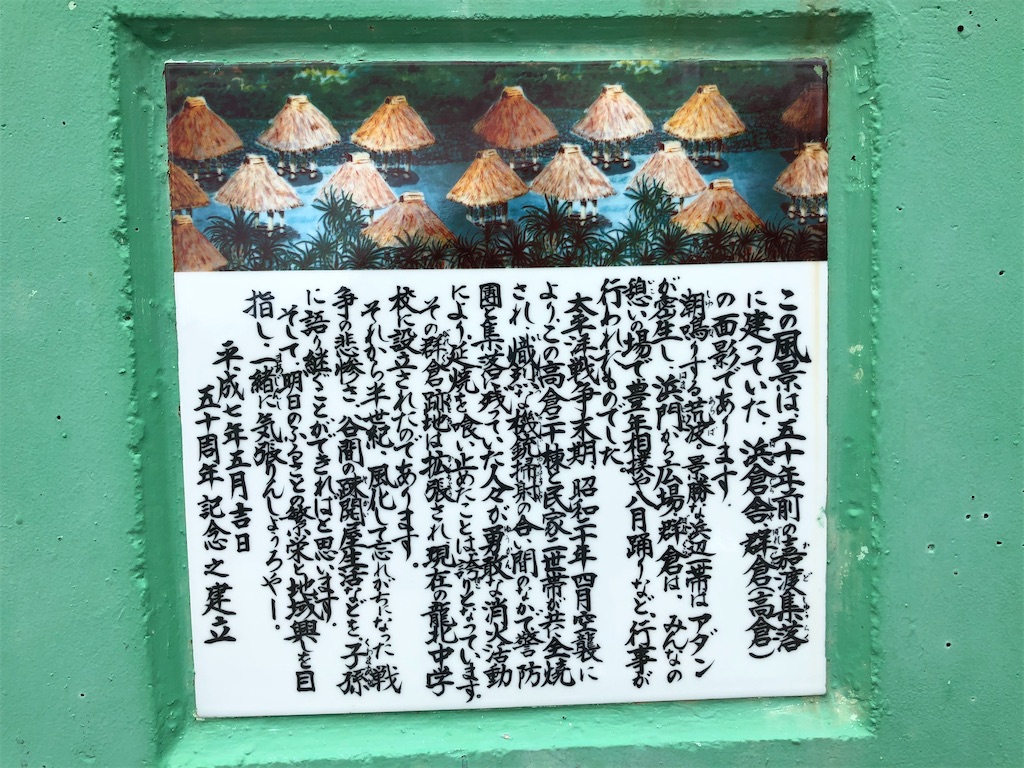 この風景は、五十年前の嘉渡集落
に建っていた、浜倉舎群倉(高倉)
の面影であります
潮鳴りする荒波、景勝な浜辺一帯はアダン
が密生し、浜門から広場群倉は、みんなの
憩いの場で豊年相撲や八月踊りなど、行事が
行われたものでした
太平洋戦争末期、昭和二十年四月空襲に
より、この高倉三十棟と民家二世帯が共に全焼
され、熾烈な機銃掃射の合い間のなかで警防
団と集落に残っていた人々が勇敢な消火活動
により延焼を喰い止めたことは誇りとなっています。
その群倉跡地は拡張され、現在の龍北中学
校に設立されたのであります。
それから半世紀、風化して忘れがちになった戦
争の悲惨さ、谷間の疎開屋生活などを、子孫
に語り継ぐことができればと思います
そして、明日のふるさとの繁栄と地域興しを目
指し、一緒に気張りんしょうろやー。
平成七年五月吉日
五十周年記念之建立